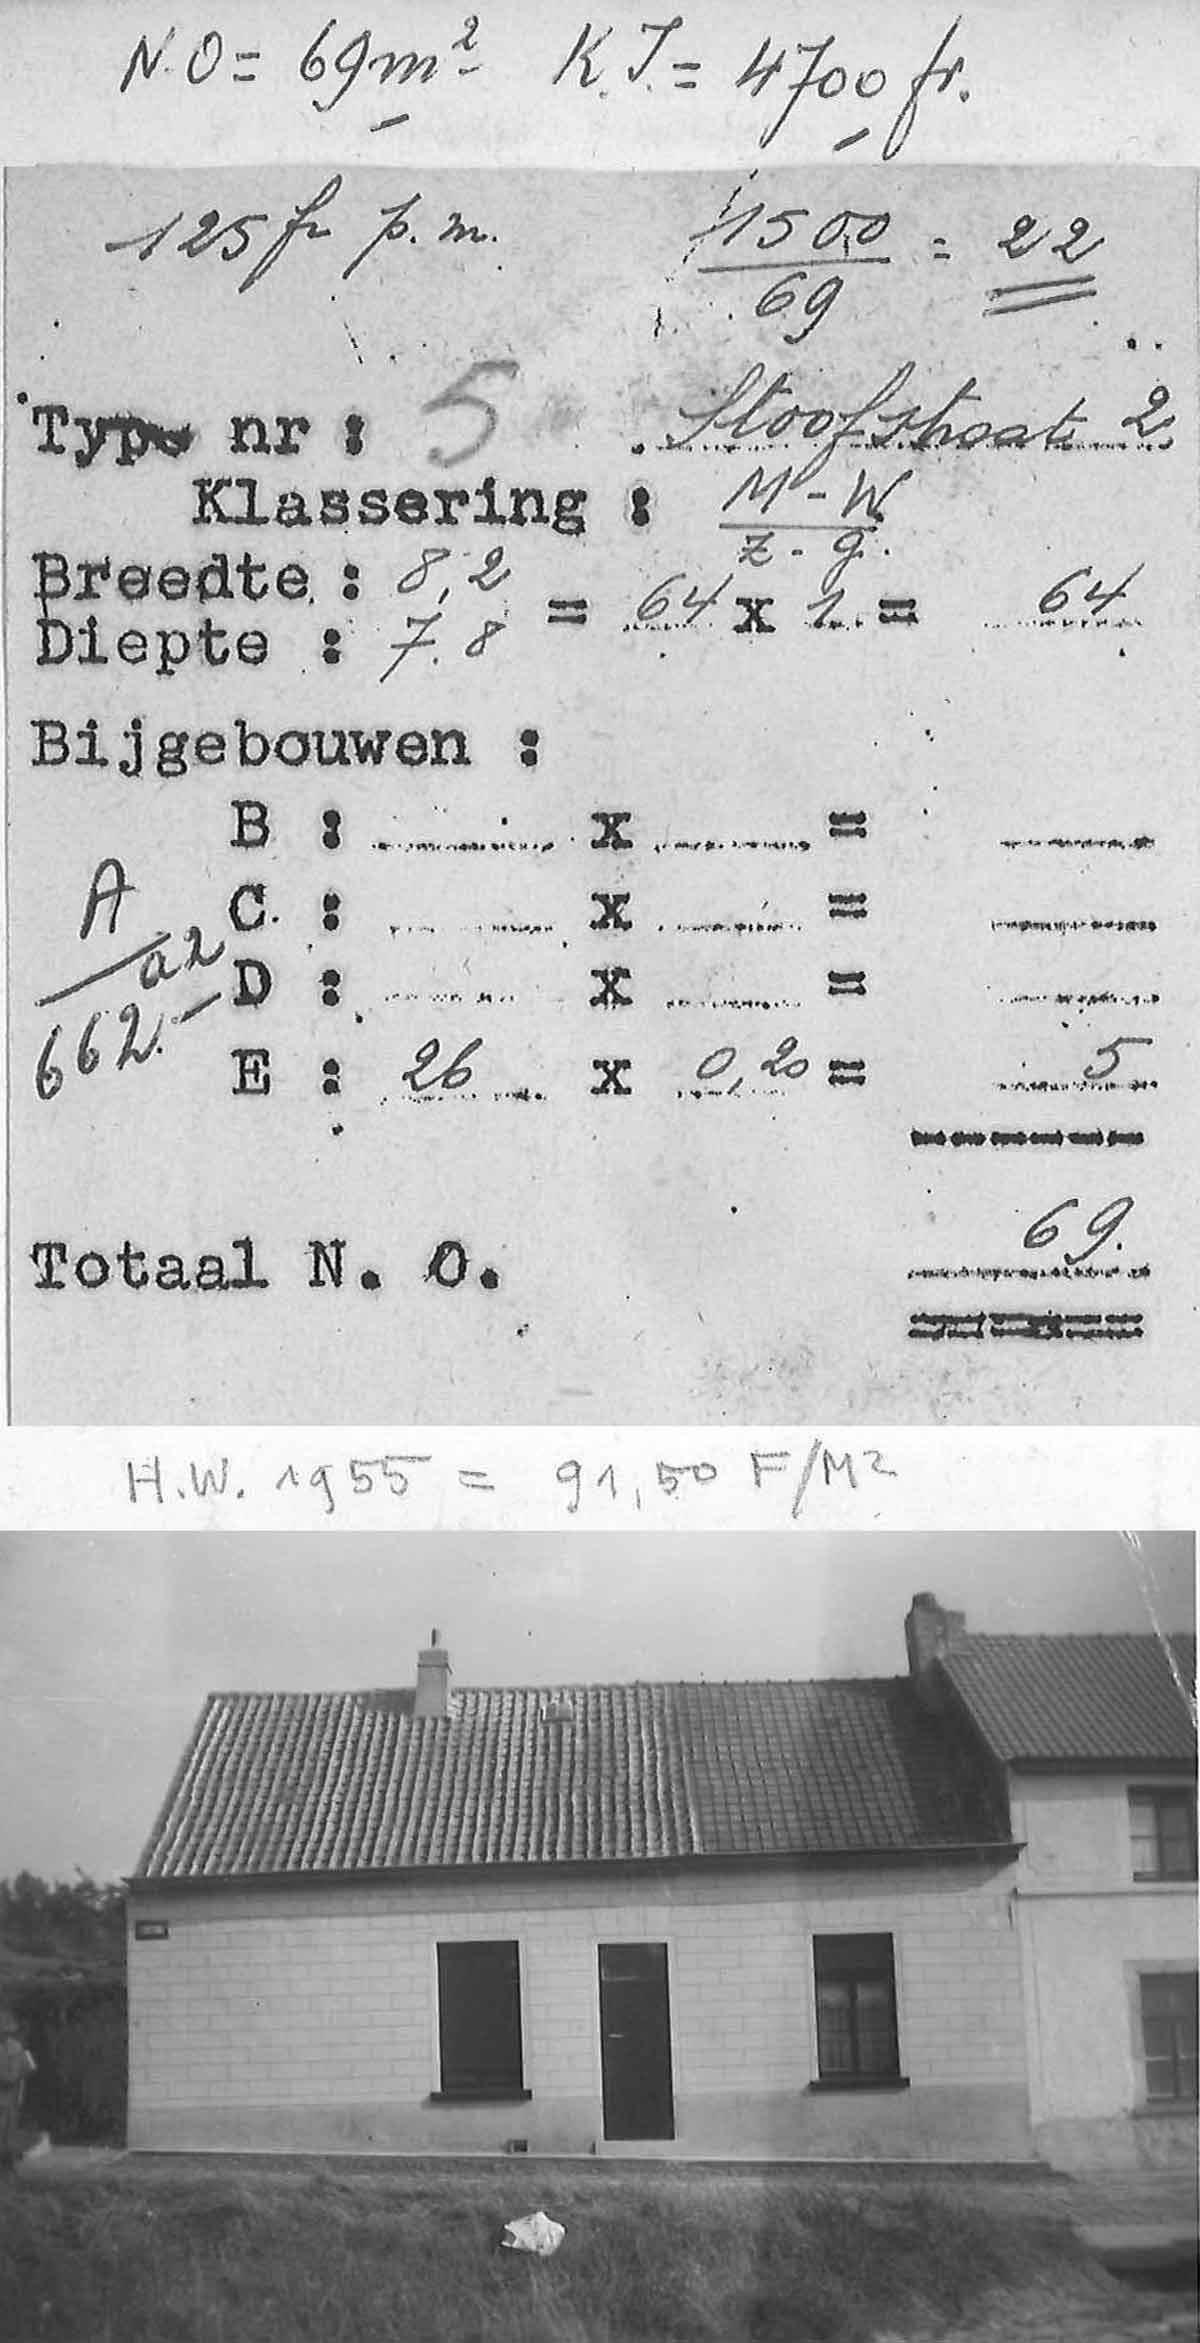 N.O = 69 m² K.I. = 4700 fr.
125 fr p.m. 1500 / 69 = 22
Type nr : 5 Stoofstraat 2
Klassering : M - W / z - g.
Breedte : 8,2
Diepte : 7.8 = 64 x 1 = 64
Bijgebouwen :
B : x =
A C. : x =
a2 D : x =
662.- E : 26 x 0,20 = 5
69.
Totaal N. O.
H.W. 1955 = 91,50 F/M2